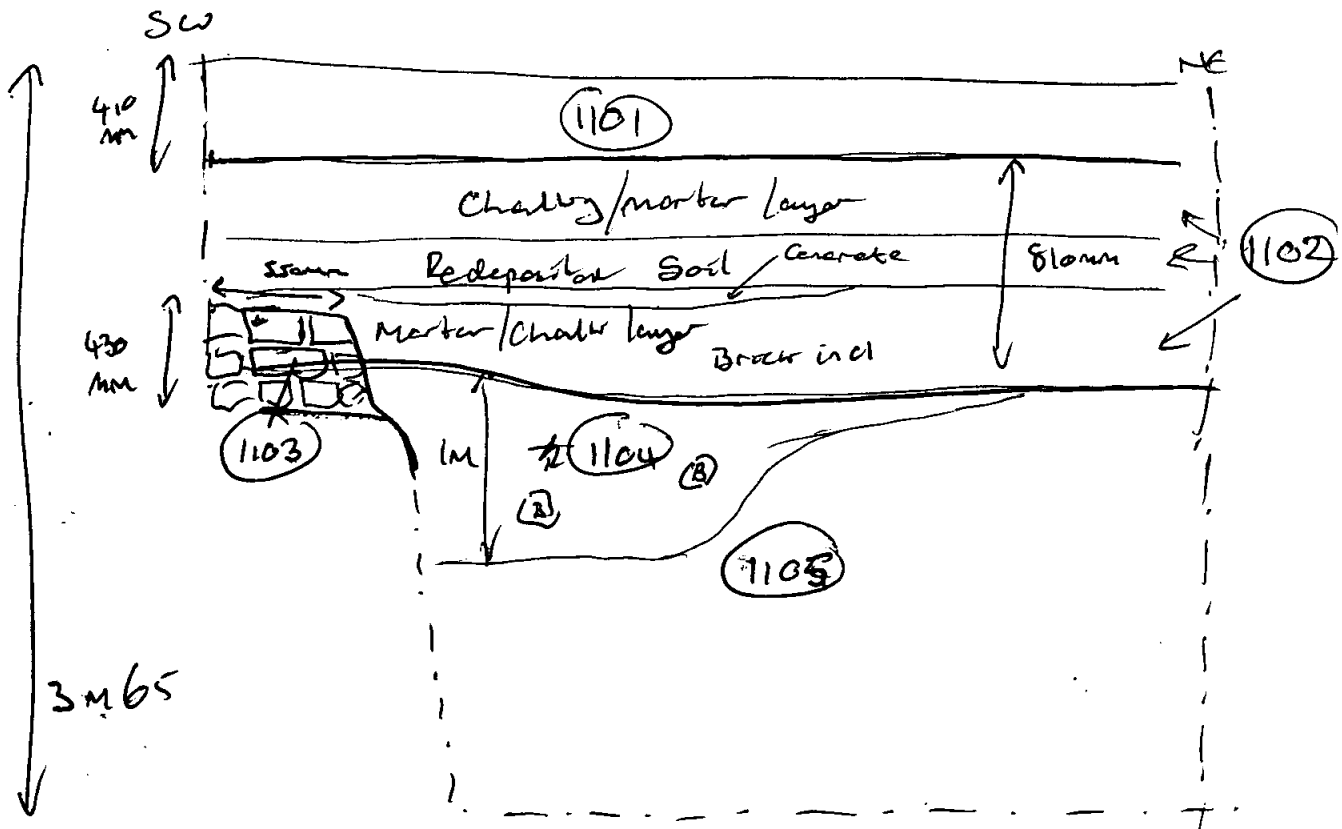 SW
NE
410
mm
1101
Chalky/mortar layer
550mm
Redeposited Soil
Concrete
810mm
1102
430
mm
Mortar/Chalk layer
Brick incl
1103
1M
1104
B
B
1105
3M65